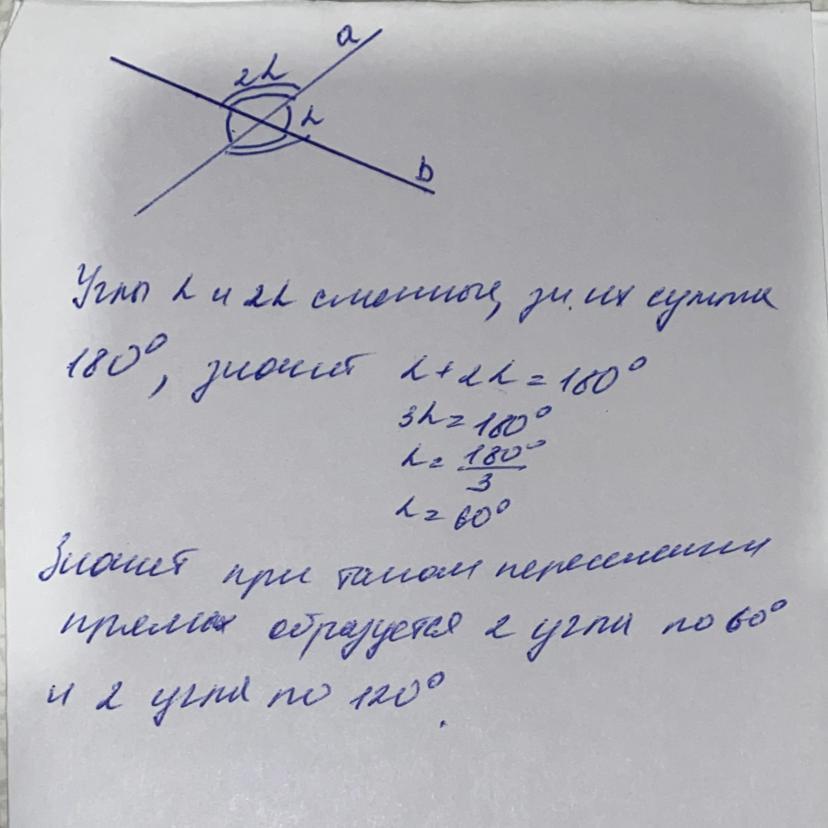 a
2α
α
b
Углы α и 2α смежные, зн. их сумма
180°, значит α+2α=180°
3α=180°
α=180°/3
α=60°
Значит при таком пересечении
прямых образуется 2 угла по 60°
и 2 угла по 120°.